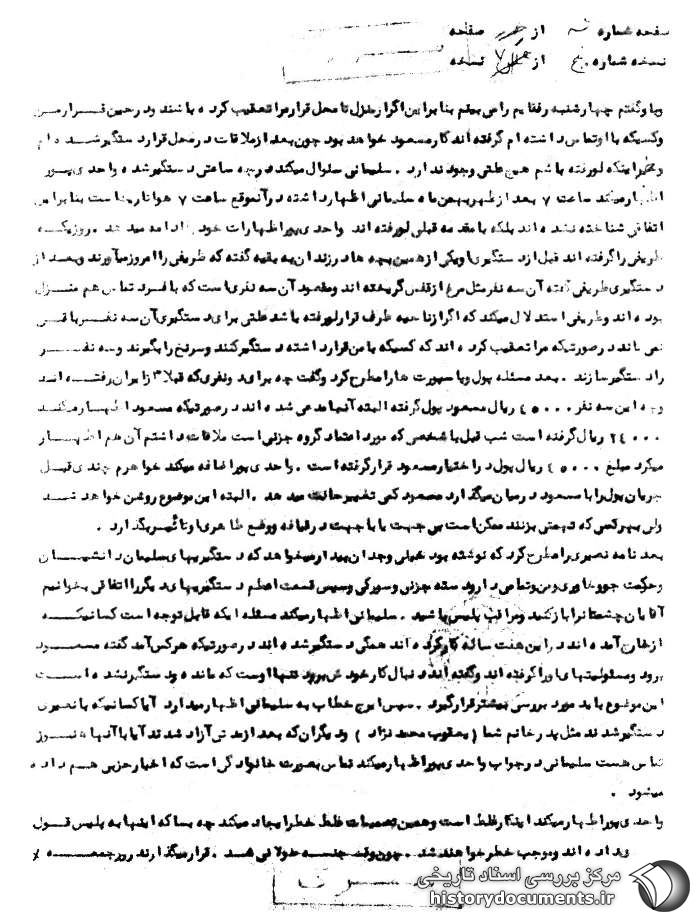 صفحه شماره سه از صفحه
نسخه شماره از نسخه
وبا وگفتم چهارشنبه رفقایم را می بینم بنابراین اگر از منزل تا محل قرار مرا تعقیب کرده باشند ودرحین قرار من
وکسیکه با او تماس داشته ام گرفته اند کار مسعود خواهد بود چون بعد از ملاقات در محل قرار دستگیر شده ام
اینکه لو رفته باشم هیچ علتی وجود ندارد . سلیمانی سئوال میکند در چه ساعتی دستگیر شده واحدی پور
اظهار میکند ساعت ۷ بعد از ظهر بهمن ماه سلیمانی اظهار داشته در آنموقع ساعت ۷ هوا تاریک است بنابراین
اتفاقی شناخته نشده اند بلکه با مقدمه قبلی لو رفته اند واحدی پور اظهارات خود را ادامه میدهد . روزیکه
ظریفی را گرفته اند قبل از دستگیری او یکی از همین بچه ها در زندان به بقیه گفته که ظریفی را امروز میآورند وبعد از
دستگیری ظریفی گفته آن سه نفر مثل مرغ از قفس گریخته اند ومقصود آن سه نفری است که با فرد تماس هم منزل
بوده اند وظریفی استدلال میکند که اگر از ناحیه طرف قرار لو رفته باشد علتی برای دستگیری آن سه نفر باقی
نمی ماند در صورتیکه مرا تعقیب کرده اند که کسیکه با من قرار داشته دستگیر کنند وسرنخ را بگیرند وسه نفر
را دستگیر سازند . بعد مسئله پول وپاسپورت ها را مطرح کرد وگفت چه برای دو نفری که قبلا از ایران رفته اند
وچه این سه نفر ۴۵۰۰۰ ریال مسعود پول گرفته البته آنها مدعی شده اند در صورتیکه مسعود اظهار میکند
۲۴۰۰۰ ریال گرفته است شب قبل با شخصی که مورد اعتماد گروه جزنی است ملاقات داشتم آن هم اظهار
میکرد مبلغ ۴۵۰۰۰ ریال پول در اختیار مسعود قرار گرفته است . واحدی پور اضافه میکند خواهرم چندی قبل
جریان پول را با مسعود در میان میگذارد مسعود کمی تغییر حالت میدهد . البته این موضوع روشن خواهد شد
ولی بهر کسی که تهمتی بزنند ممکن است بی جهت یا با جهت در قیافه ووضع ظاهری او تاثیر بگذارد .
بعد نامه نصیری را مطرح کرد که نوشته بود خیلی وجدان بیدار میخواهد که دستگیریهای سلیمان دانشیان
وحکمت جو وخاوری ومن وتماس دارو دسته جزنی وسورکی وسپس قسمت اعظم دستگیریهای دیگر را اتفاقی بخوانیم
آقایان چشمتانرا باز کنید ومراقب پلیس باشید . سلیمانی اظهار میکند مسئله ایکه قابل توجه است کسانیکه
از خارج آمده اند در این هفت ساله کار کرده اند همگی دستگیر شده اند در صورتیکه هر کس آمد گفته مسعود
برود ومسئولیتهای او را گرفته اند وگفته اند دنبال کار خودش برود تنها اوست که مانده ودستگیر نشده است
این موضوع باید مورد بررسی بیشتر قرار گیرد . سپس ایرج خطاب به سلیمانی اظهار میدارد آیا کسانیکه با نصیری
دستگیر شدند مثل پدر خانم شما (یعقوب محمد نژاد ) ودیگران که بعد از مدتی آزاد شدند آیا با آنها هنوز
تماس هست سلیمانی در جواب واحدی پور اظهار میکند تماس بصورت خانوادگی است که اخبار حزبی هم داده
میشود .
واحدی پور اظهار میکند اینکار غلط است وهمین تصمیمات غلط خطر ایجاد میکند چه بسا که اینها به پلیس قول
داده اند وموجب خطر خواهند شد . چون وقت جلسه طولانی شد . قرار میگذارند روز جمعه
سری
مرکز بررسی اسناد تاریخی
historydocuments.ir